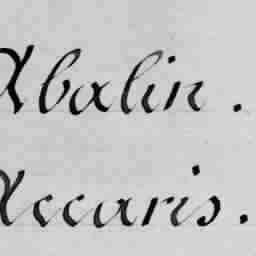 Abalin.
Accaris.